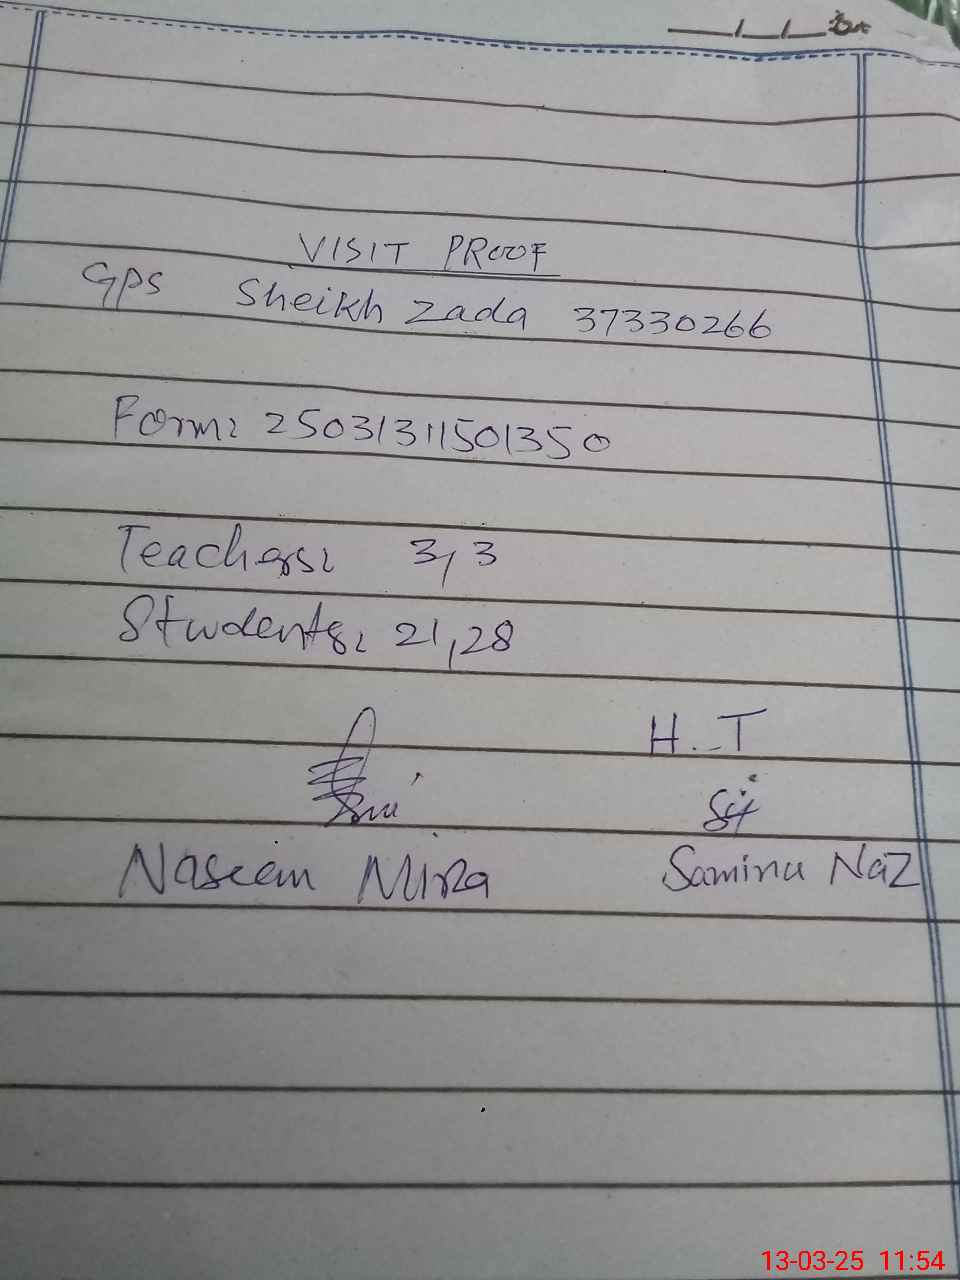 VISIT PROOF
GPS Sheikh Zada 37330266
Form: 25031311501350
Teachers: 3, 3
Students: 21, 28
H.T
Naseem Mirza
Samina Naz
13-03-25 11:54